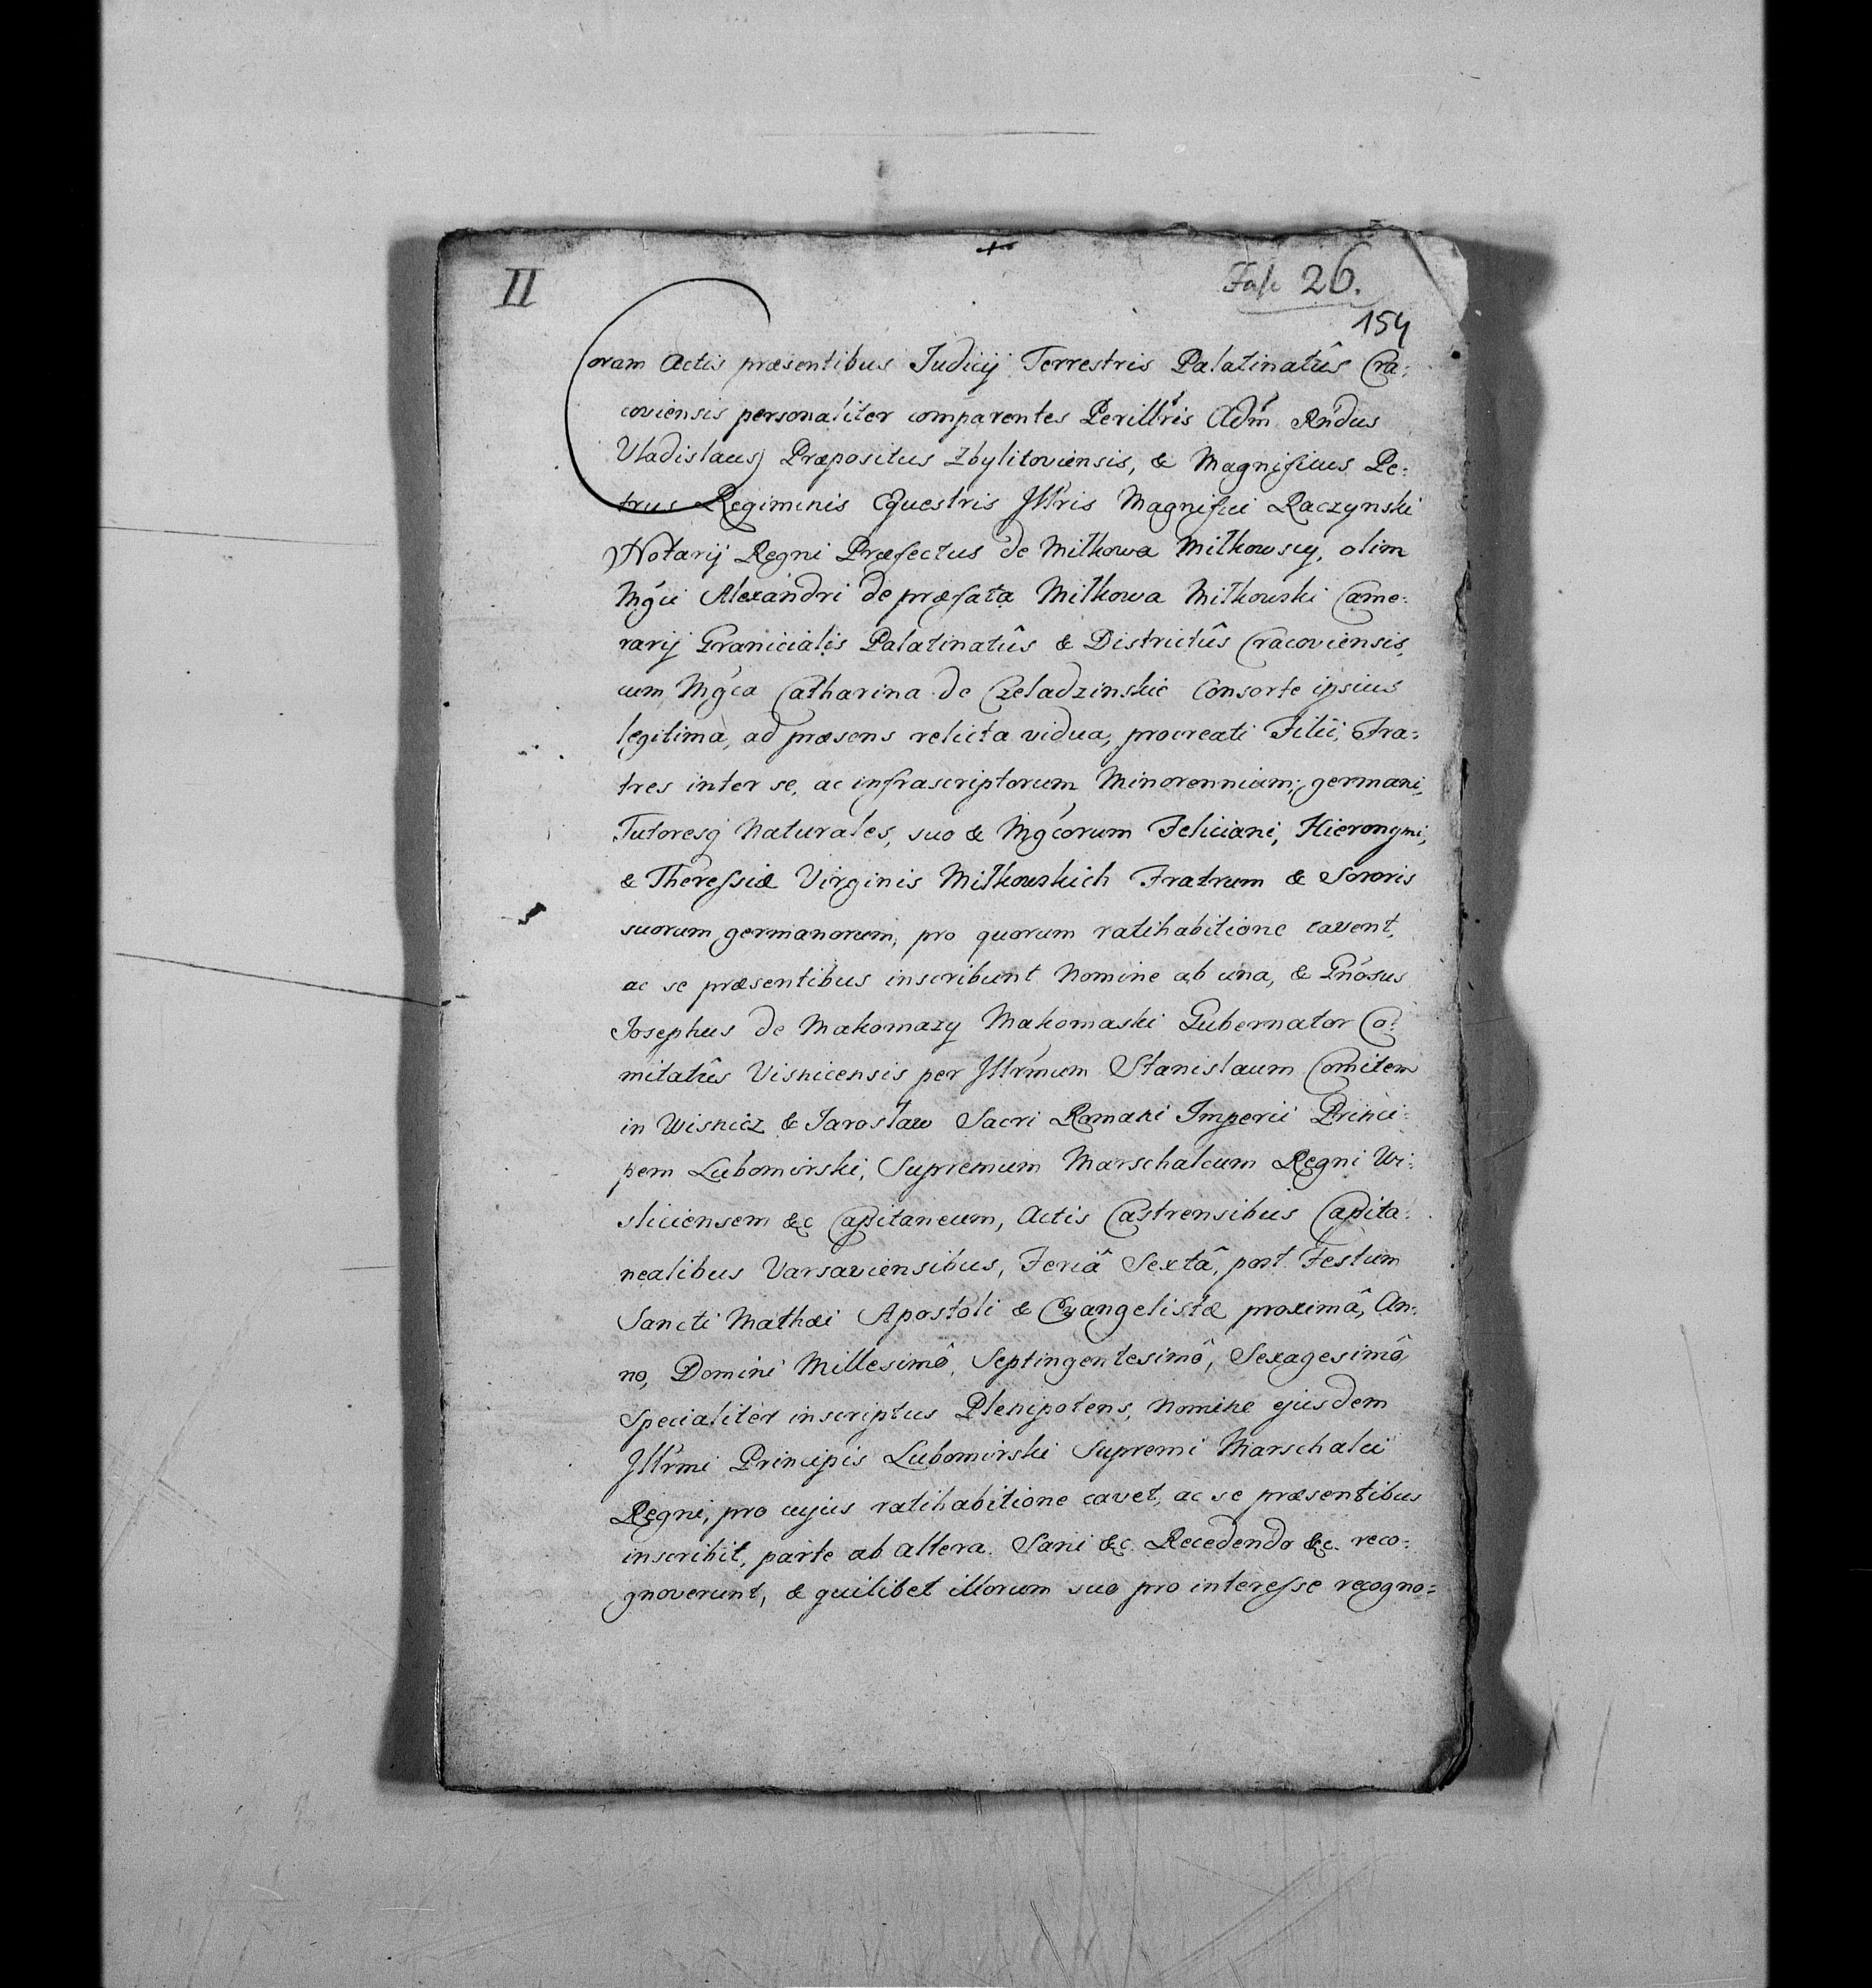 II
Fasc 26.
154
Coram Actis præsentibus Judicij Terrestris Palatinatûs Cra:
coviensis personaliter comparentes Perillris Adm Rndus
Vladislaus Præpositus Zbylitoviensis, & Magnificus Pe:
trus Regiminis Equestris Illris Magnifici Raczynski
Notarij Regni Præfectus de Miłkowa Miłkowscy, olim
Mgci Alexandri de præfata Miłkowa Miłkowski Came:
rarij Granicialis Palatinatûs & Districtûs Cracoviensis,
cum Mgca Catharina de Czeladzinskie Consorte ipsius
legitima, ad præsens relicta vidua, procreati Filii, Fra:
tres inter se, ac infrascriptorum Minorennium, germani,
Tutoresq Naturales, suo & Mgcorum Feliciani, Hieronymi,
& Theressiæ Virginis Miłkowskich Fratrum & Sororis
suorum germanorum, pro quorum ratihabitione cavent,
ac se præsentibus inscribunt Nomine ab una, & Gnosus
Josephus de Makomazy Makomaski Gubernator Co:
mitatûs Visnicensis per Illrmum Stanislaum Comitem
in Wisnicz & Jarosław Sacri Romani Imperii Princi:
pem Lubomirski, Supremum Marschalcum Regni Wi:
sliciensem &c Capitaneum, Actis Castrensibus Capita:
nealibus Varsaviensibus, Feriâ Sextâ, post Festum
Sancti Mathæi Apostoli & Evangelistæ proximâ, An:
no, Domini Millesimô, Septingentesimô, Sexagesimô,
Specialiter inscriptus Plenipotens, Nomine ejusdem
Illrmi Principis Lubomirski Supremi Marschalci
Regni, pro cujus ratihabitione cavet, ac se præsentibus
inscribit, parte ab altera. Sani &c. Recedendo &c. reco:
gnoverunt, & quilibet illorum suo pro interesse recogno: